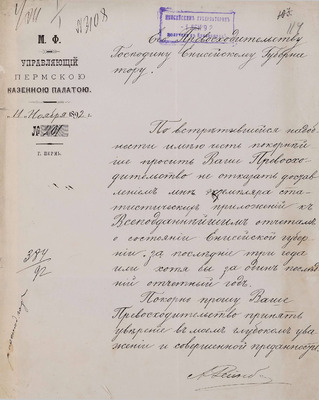 №3108
М. Ф.
УПРАВЛЯЮЩІЙ
ПЕРМСКОЮ
КАЗЕННОЮ ПАЛАТОЮ.
11 Ноября 1892 г.
№ 201
Г. ПЕРМЬ.
Его Превосходительству
Господину Енисейскому Губерна
тору.
По встрѣтившейся надоб
ности имѣю честь покорнѣй
ше просить Ваше Превосхо
дительство не отказать достав
леніемъ мнѣ экземпляра ста
тистическихъ приложеній къ
Всеподданнѣйшимъ отчетамъ
о состояніи Енисейской губер
ніи за послѣдніе три года
или хотя бы за одинъ послѣд
ній отчетный годъ.
Покорно прошу Ваше
Превосходительство принять
увѣреніе въ моемъ глубокомъ ува
женіи и совершенной преданности.